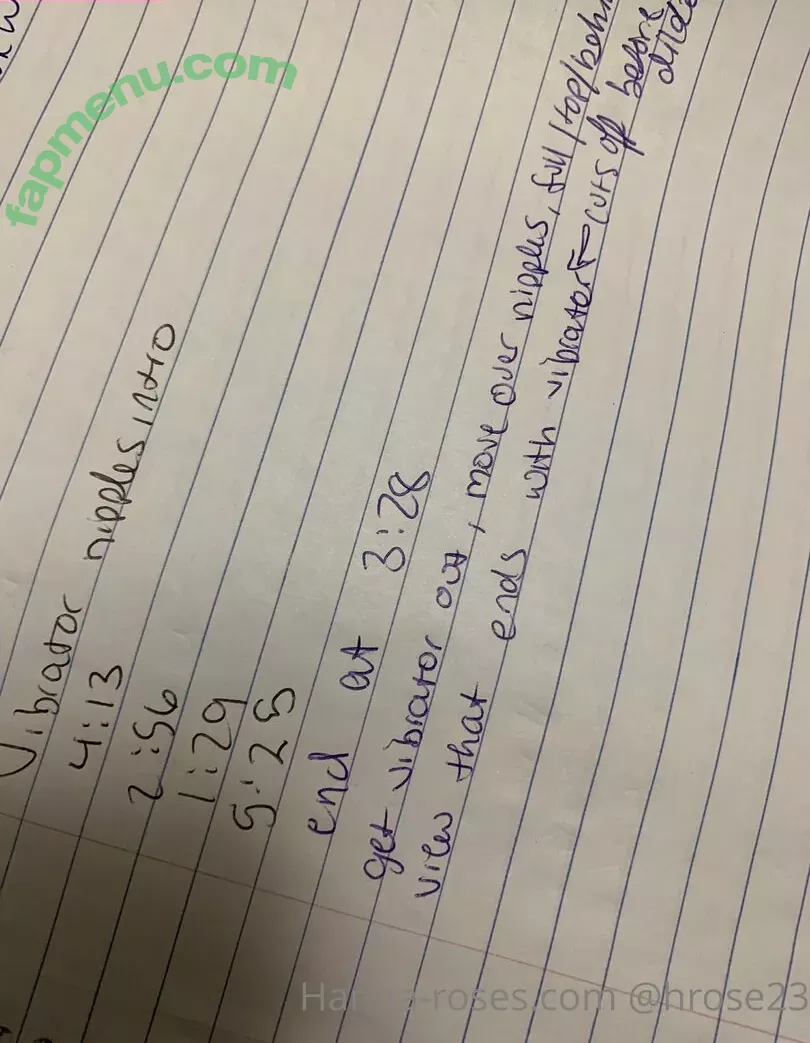 fapmenu.com
Vibrator nipples intro
4:13
2:56
1:29
5:25
end at 3:28
get vibrator out, move over nipples, full/top/behi
view that ends with vibrator ← cuts of before
dildo
@hrose23